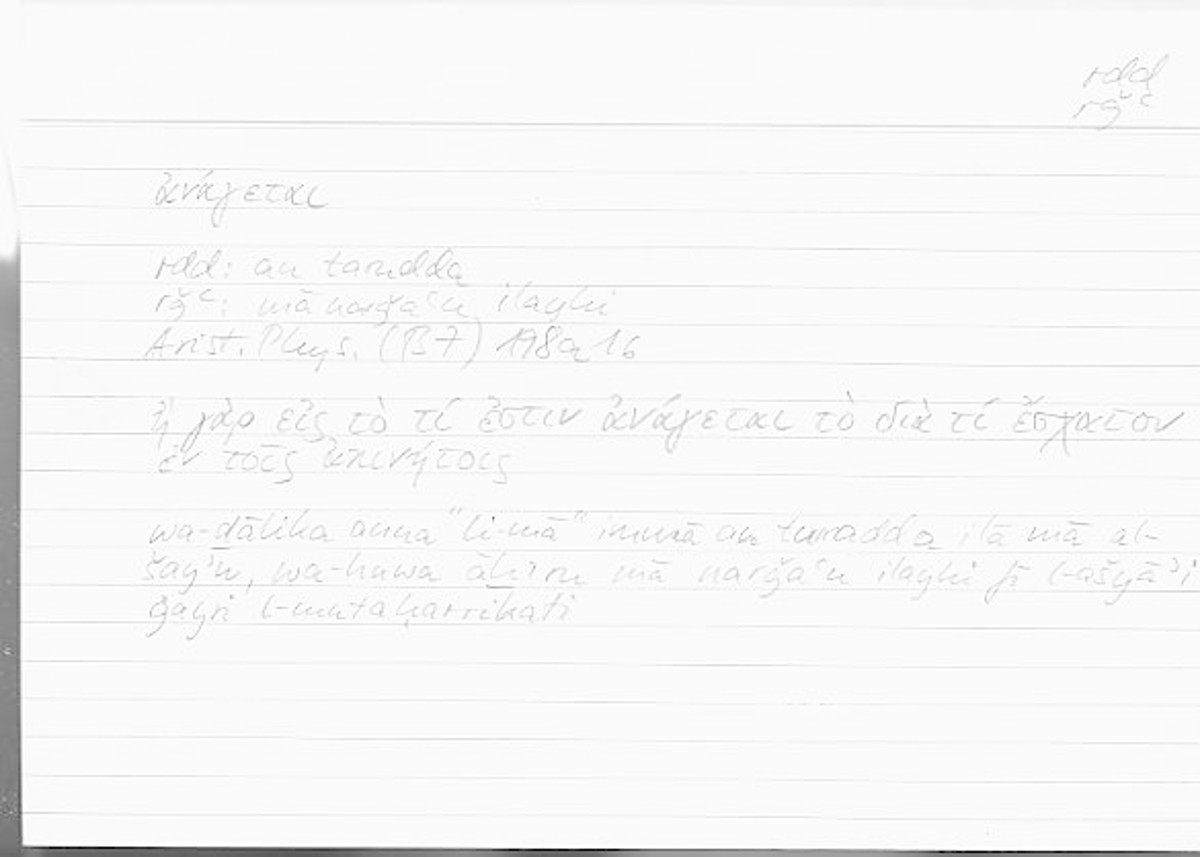 rdd
rǧʿ
ἀνάγεται
rdd: an turadda
rǧʿ: mā narǧaʿu ilayhi
Arist. Phys. (B7) 198a16
ἢ γὰρ εἰς τὸ τί ἐστιν ἀνάγεται τὸ διὰ τί ἔσχατον
ἐν τοῖς ἀκινήτοις
wa-ḏālika anna "li-mā" immā an turadda ilā mā al-
šayʾu, wa-huwa āḫiru mā narǧaʿu ilayhi fī l-ašyāʾi
ġayri l-mutaḥarrikati